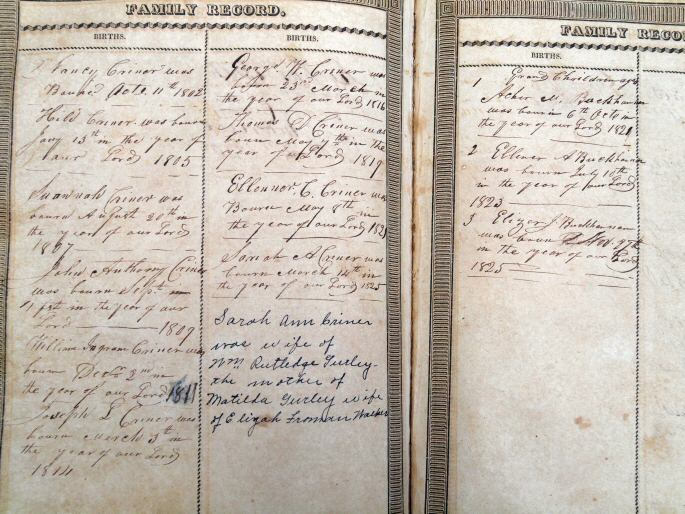 FAMILY RECORD.
BIRTHS.
Nancy Criner was
Bourn Octo. 11th 1802
Criner was bourn
Jany 13th in the year of
our Lord 1805
Criner was
bourn August 20th in
the year of our Lord
1807
John Anthony Criner
was bourn Sept in
in the year of our
Lord 1809
William Ingram Criner was
bourn Decr 2nd in
the year of our Lord 1811
Joseph L Criner was
bourn March 3th in
the year of our Lord
1814
BIRTHS.
George H. Criner was
born 23rd March in
the year of our Lord 1816
Thomas D Criner was
bourn May 7th in the
year of our Lord 1819
Ellennor C. Criner was
Bourn May 8th in
the year of our Lord 1821
Sarah A Criner was
bourn March 14th in
the year of our Lord 1825
Sarah Ann Criner
was wife of
Wm Rutledge Gurley-
the mother of
Matilda Gurley wife
of Elizah Froman Walker
FAMILY RECO
BIRTHS.
Grand Children
1 M. Buckhannan
was born in 6th Octo in
the year of our Lord 1821
2 Ellenor A Buckhannan
was bourn July 10th
in the year of our Lord
1823
3 J Buckhannan
was bourn Nov 27th
in the year of our Lord
1825